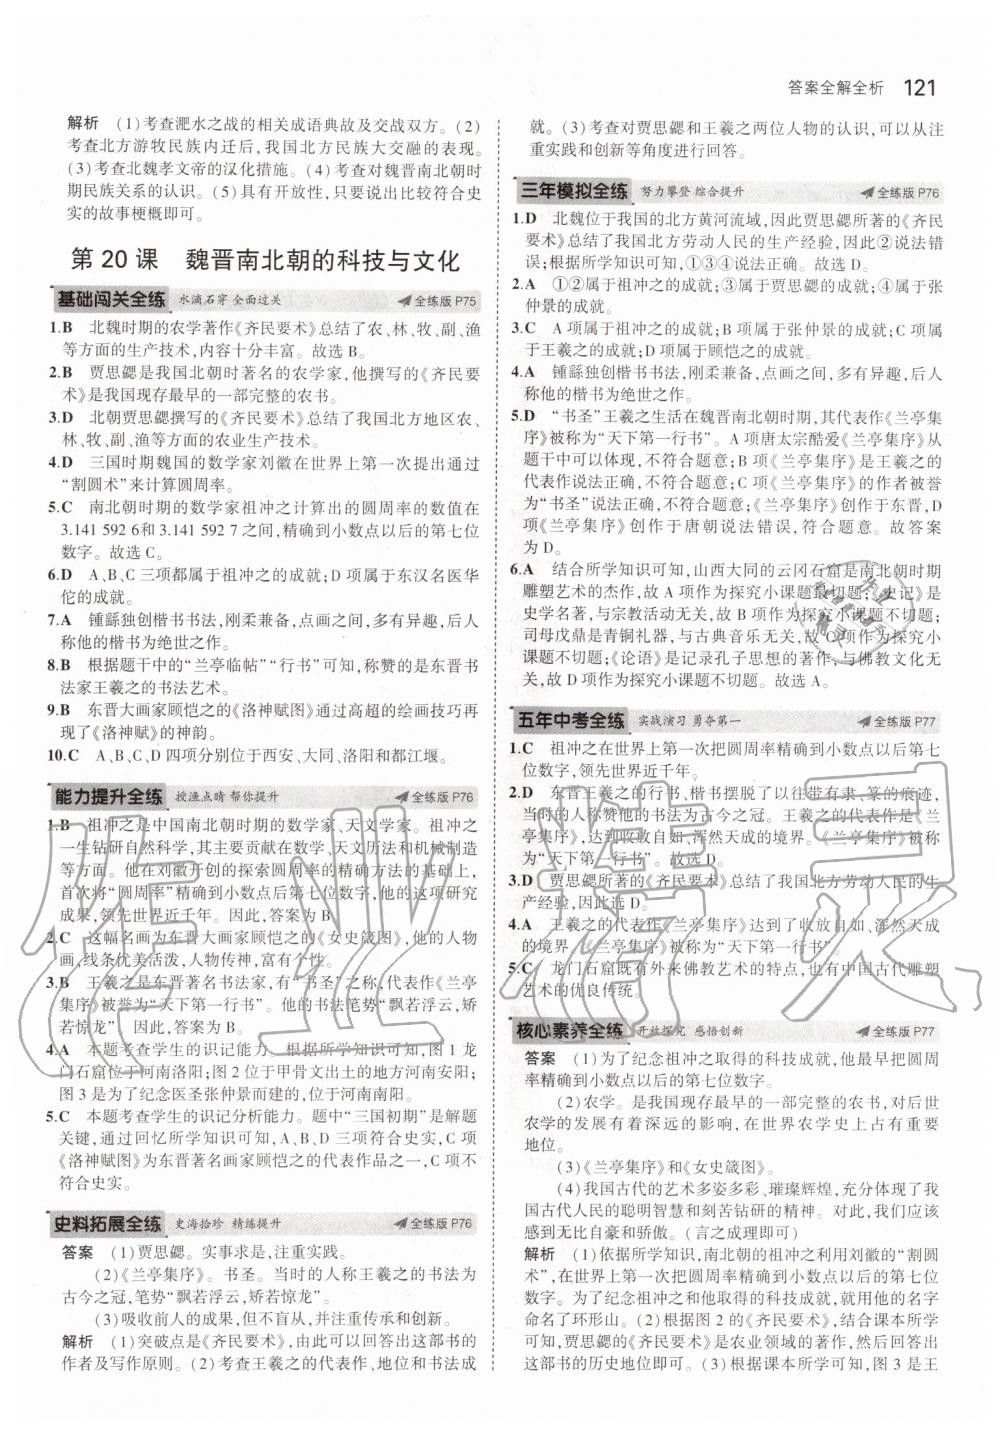 答案全解全析 121
解析 (1)考查淝水之战的相关成语典故及交战双方。(2)
考查北方游牧民族内迁后,我国北方民族大交融的表现。
(3)考查北魏孝文帝的汉化措施。(4)考查对魏晋南北朝时
期民族关系的认识。(5)具有开放性,只要说出比较符合史
实的故事梗概即可。
第 20 课 魏晋南北朝的科技与文化
基础闯关全练 水滴石穿 全面过关 全练版 P75
1.B 北魏时期的农学著作《齐民要术》总结了农、林、牧、副、渔
等方面的生产技术,内容十分丰富。故选 B。
2.B 贾思勰是我国北朝时著名的农学家,他撰写的《齐民要
术》是我国现存最早的一部完整的农书。
3.D 北朝贾思勰撰写的《齐民要术》总结了我国北方地区农、
林、牧、副、渔等方面的农业生产技术。
4.D 三国时期魏国的数学家刘徽在世界上第一次提出通过
“割圆术”来计算圆周率。
5.C 南北朝时期的数学家祖冲之计算出的圆周率的数值在
3.141 592 6和 3.141 592 7 之间,精确到小数点以后的第七位
数字。故选 C。
6.D A、B、C 三项都属于祖冲之的成就;D 项属于东汉名医华
佗的成就。
7.A 锺繇独创楷书书法,刚柔兼备,点画之间,多有异趣,后人
称他的楷书为绝世之作。
8.B 根据题干中的“兰亭临帖”“行书”可知,称赞的是东晋书
法家王羲之的书法艺术。
9.B 东晋大画家顾恺之的《洛神赋图》通过高超的绘画技巧再
现了《洛神赋》的神韵。
10.C A、B、C、D 四项分别位于西安、大同、洛阳和都江堰。
能力提升全练 授渔点睛 帮你提升 全练版 P76
1.B 祖冲之是中国南北朝时期的数学家、天文学家。祖冲之
一生钻研自然科学,其主要贡献在数学、天文历法和机械制造
等方面。他在刘徽开创的探索圆周率的精确方法的基础上,
首次将“圆周率”精确到小数点后第七位数字,他的这项研究
成果,领先世界近千年。因此,答案为 B。
2.C 这幅名画为东晋大画家顾恺之的《女史箴图》,他的人物
画,线条优美活泼,人物传神,富有个性。
3.B 王羲之是东晋著名书法家,有“书圣”之称,代表作《兰亭
集序》被誉为“天下第一行书”。他的书法笔势“飘若浮云,矫
若惊龙”。因此,答案为 B。
4.A 本题考查学生的识记能力。根据所学知识可知,图 1 龙
门石窟位于河南洛阳;图 2 位于甲骨文出土的地方河南安阳;
图 3 是为了纪念医圣张仲景而建的,位于河南南阳。
5.C 本题考查学生的识记分析能力。题中“三国初期”是解题
关键,通过回忆所学知识可知,A、B、D 三项符合史实,C 项
《洛神赋图》为东晋著名画家顾恺之的代表作品之一,C 项不
符合史实。
史料拓展全练 史海拾珍 精练提升 全练版 P76
答案 (1)贾思勰。实事求是,注重实践。
(2)《兰亭集序》。书圣。当时的人称王羲之的书法为
古今之冠,笔势“飘若浮云,矫若惊龙”。
(3)吸收前人的成果,但不盲从,并注重传承和创新。
解析 (1)突破点是《齐民要术》,由此可以回答出这部书的
作者及写作原则。(2)考查王羲之的代表作、地位和书法成
就。(3)考查对贾思勰和王羲之两位人物的认识,可以从注
重实践和创新等角度进行回答。
三年模拟全练 努力攀登 综合提升 全练版 P76
1.D 北魏位于我国的北方黄河流域,因此贾思勰所著的《齐民
要术》总结了我国北方劳动人民的生产经验,因此②说法错
误;根据所学知识可知,①③④说法正确。故选 D。
2.A ①②属于祖冲之的成就,③属于贾思勰的成就;④属于张
仲景的成就。
3.C A 项属于祖冲之的成就;B 项属于张仲景的成就;C 项属
于王羲之的成就;D 项属于顾恺之的成就。
4.A 锺繇独创楷书书法,刚柔兼备,点画之间,多有异趣,后人
称他的楷书为绝世之作。
5.D “书圣”王羲之生活在魏晋南北朝时期,其代表作《兰亭集
序》被称为“天下第一行书”。A 项唐太宗酷爱《兰亭集序》从
题干中可以体现,不符合题意;B 项《兰亭集序》是王羲之的
代表作说法正确,不符合题意;C 项《兰亭集序》的作者被誉
为“书圣”说法正确,不符合题意;《兰亭集序》创作于东晋,D
项《兰亭集序》创作于唐朝说法错误,符合题意。故答案
为 D。
6.A 结合所学知识可知,山西大同的云冈石窟是南北朝时期
雕塑艺术的杰作,故 A 项作为探究小课题最切题;《史记》是
史学名著,与宗教活动无关,故 B 项作为探究小课题不切题;
司母戊鼎是青铜礼器,与古典音乐无关,故 C 项作为探究小
课题不切题;《论语》是记录孔子思想的著作,与佛教文化无
关,故 D 项作为探究小课题不切题。故选 A。
五年中考全练 实战演习 勇夺第一 全练版 P77
1.C 祖冲之在世界上第一次把圆周率精确到小数点以后第七
位数字,领先世界近千年。
2.D 东晋王羲之的行书、楷书摆脱了以往带有隶、篆的痕迹,
当时的人称赞他的书法为古今之冠。王羲之的代表作是《兰
亭集序》,达到收放自如、浑然天成的境界。《兰亭集序》被称
为“天下第一行书”。故选 D。
3.D 贾思勰所著的《齐民要术》总结了我国北方劳动人民的生
产经验,因此选 D。
4.A 王羲之的代表作《兰亭集序》达到了收放自如、浑然天成
的境界,《兰亭集序》被称为“天下第一行书”。
5.C 龙门石窟既有外来佛教艺术的特点,也有中国古代雕塑
艺术的优良传统。
核心素养全练 开放探究 感悟创新 全练版 P77
答案 (1)为了纪念祖冲之取得的科技成就,他最早把圆周
率精确到小数点以后的第七位数字。
(2)农学。是我国现存最早的一部完整的农书,对后世
农学的发展有着深远的影响,在世界农学史上占有重要
地位。
(3)《兰亭集序》和《女史箴图》。
(4)我国古代的艺术多姿多彩、璀璨辉煌,充分体现了我
国古代人民的聪明智慧和刻苦钻研的精神。对此,我们应
感到无比自豪和骄傲。(言之成理即可)
解析 (1)依据所学知识,南北朝的祖冲之利用刘徽的“割圆
术”,在世界上第一次把圆周率精确到小数点以后的第七位
数字。为了纪念祖冲之和他取得的科技成就,就用他的名字
命名了环形山。(2)根据图 2 的《齐民要术》,结合课本所学
可知,贾思勰的《齐民要术》是农业领域的著作,然后回答出
这部书的历史地位即可。(3)根据课本所学可知,图 3 是王
作业精灵